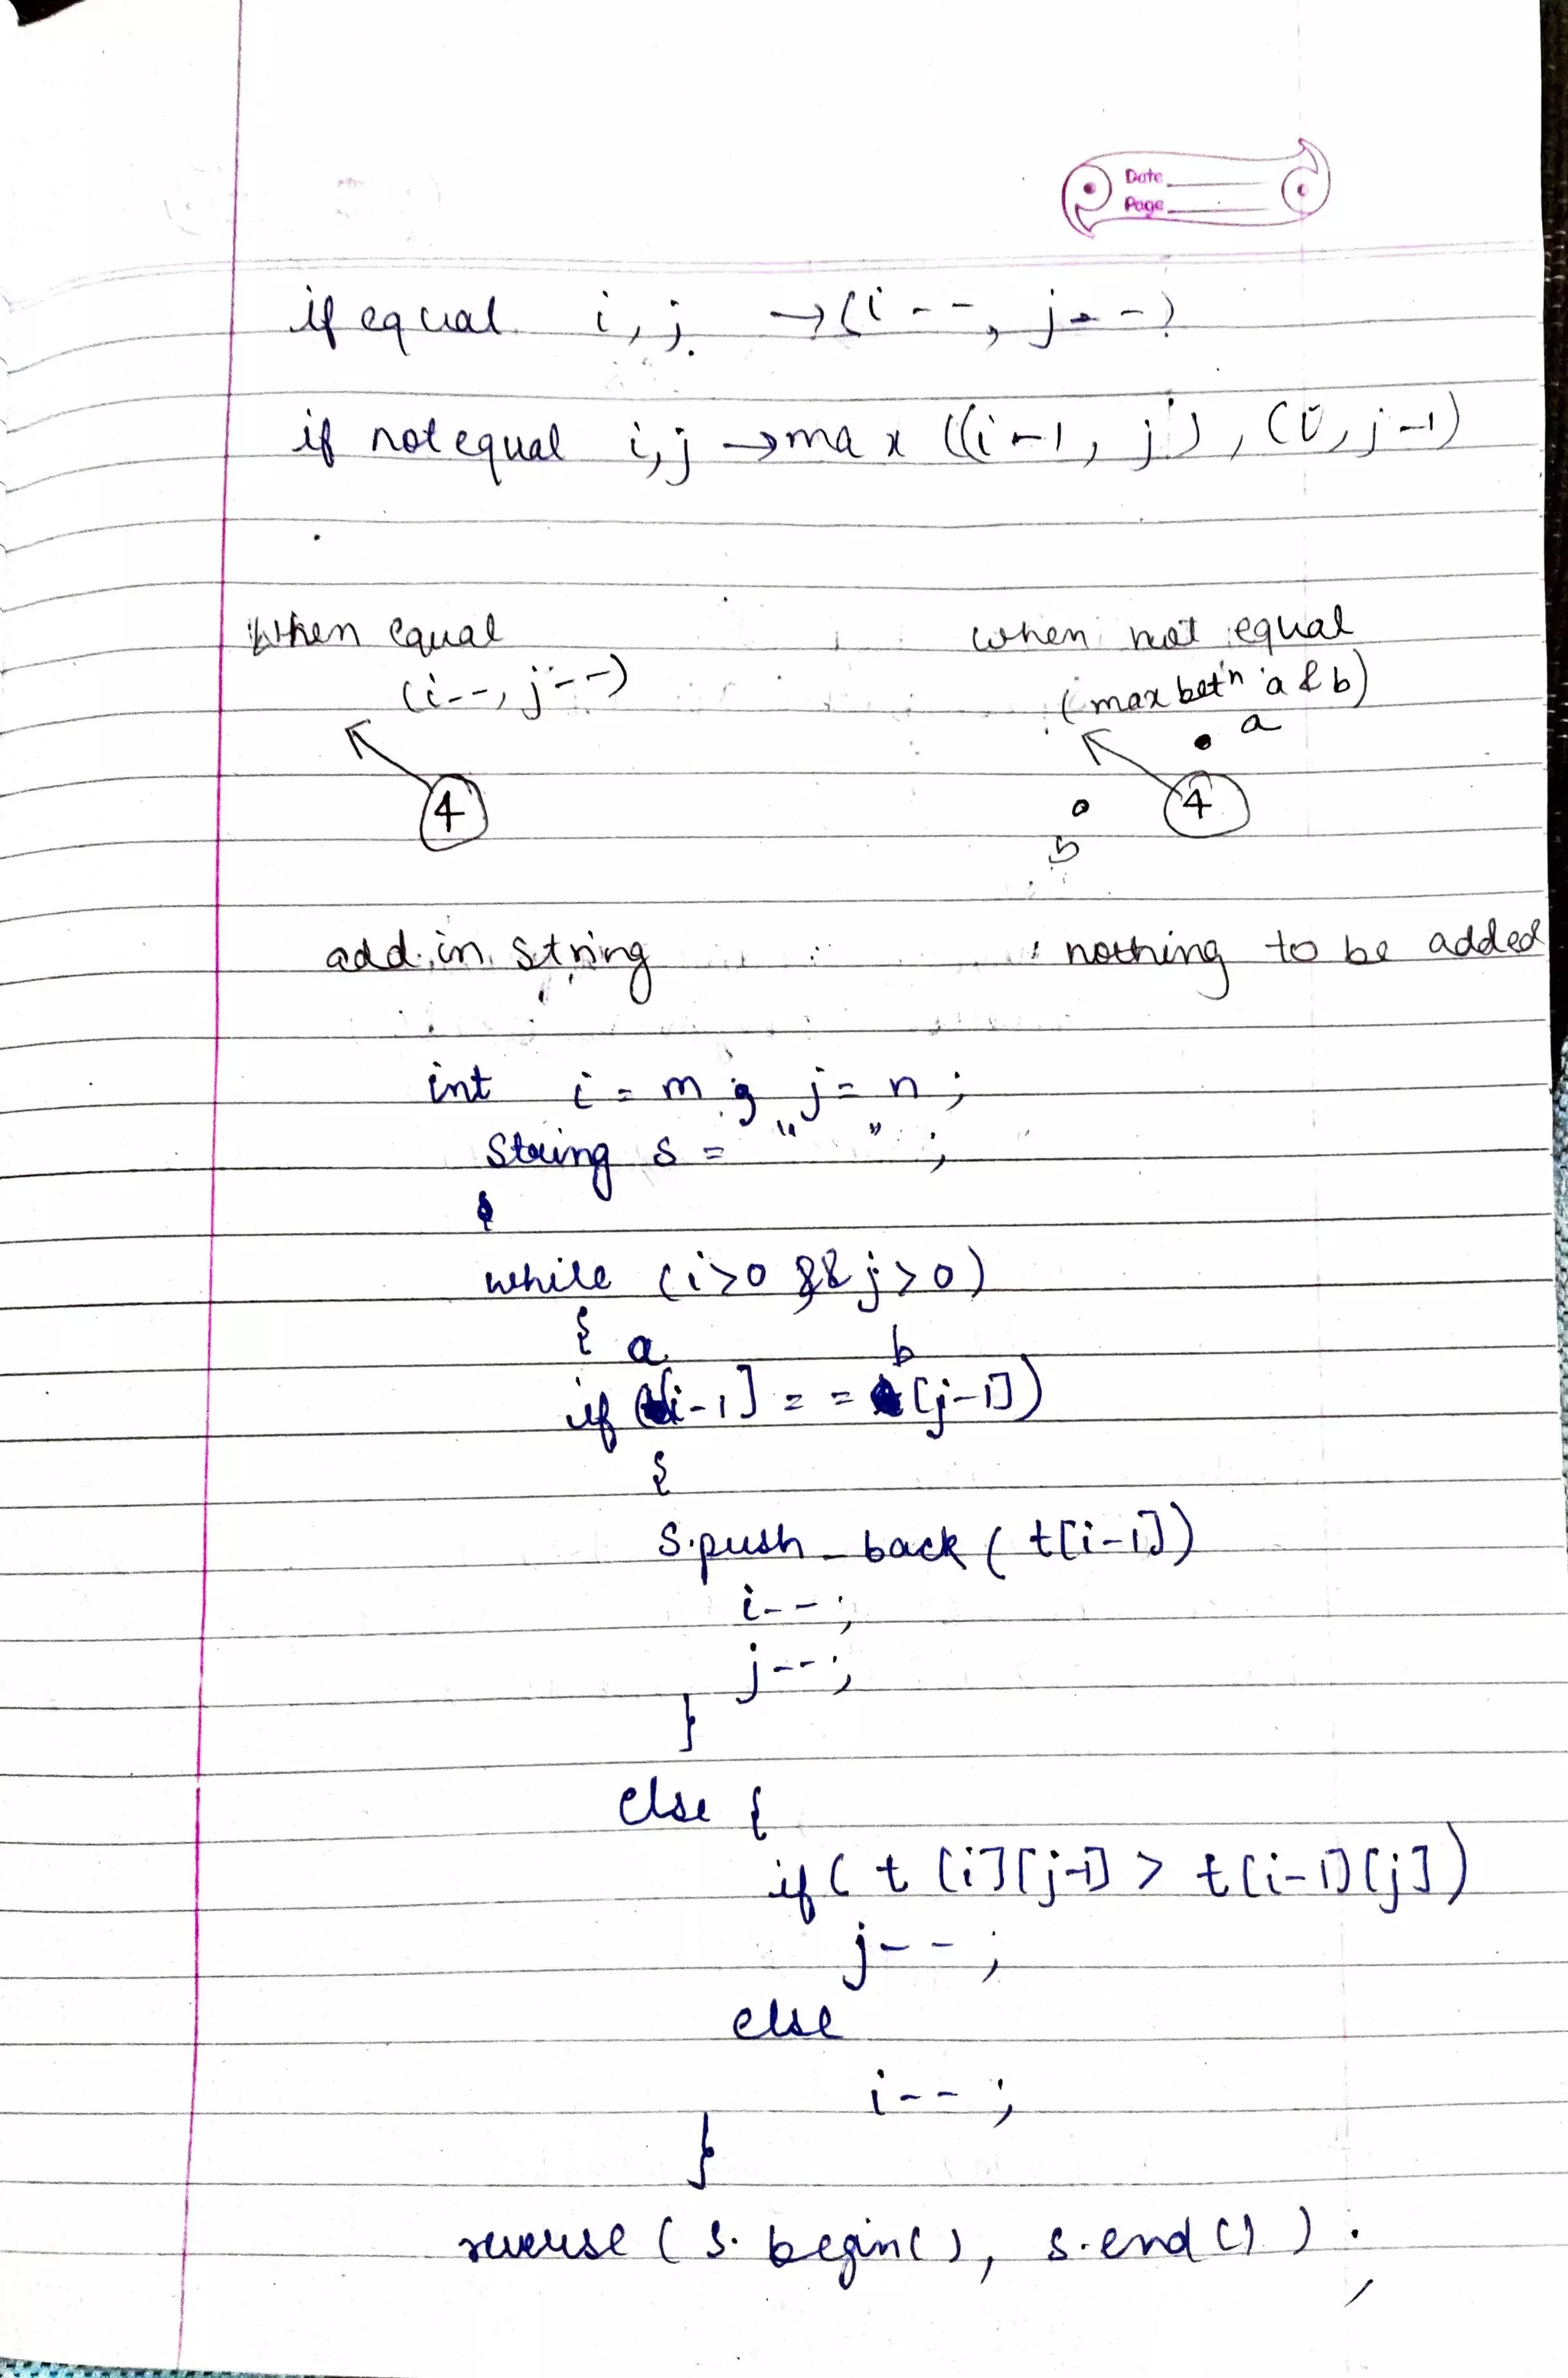 Date
Page
if equal i, j → (i--, j--)
if not equal i,j → max ((i-1, j), (i, j-1)
When equal
(i--, j--)
4
add in string
when not equal
(max betn a & b)
a
4
b
nothing to be added
int i = m ; j = n ;
String s = " " ;
while (i>0 && j>0)
{ a b
if ([i-1] == [j-1])
{
s.push_back ( t[i-1])
i--;
j--;
}
else {
if ( t [i][j-1] > t[i-1][j])
j-- ;
else
i-- ;
}
reverse ( s. begin(), s.end () ) ;